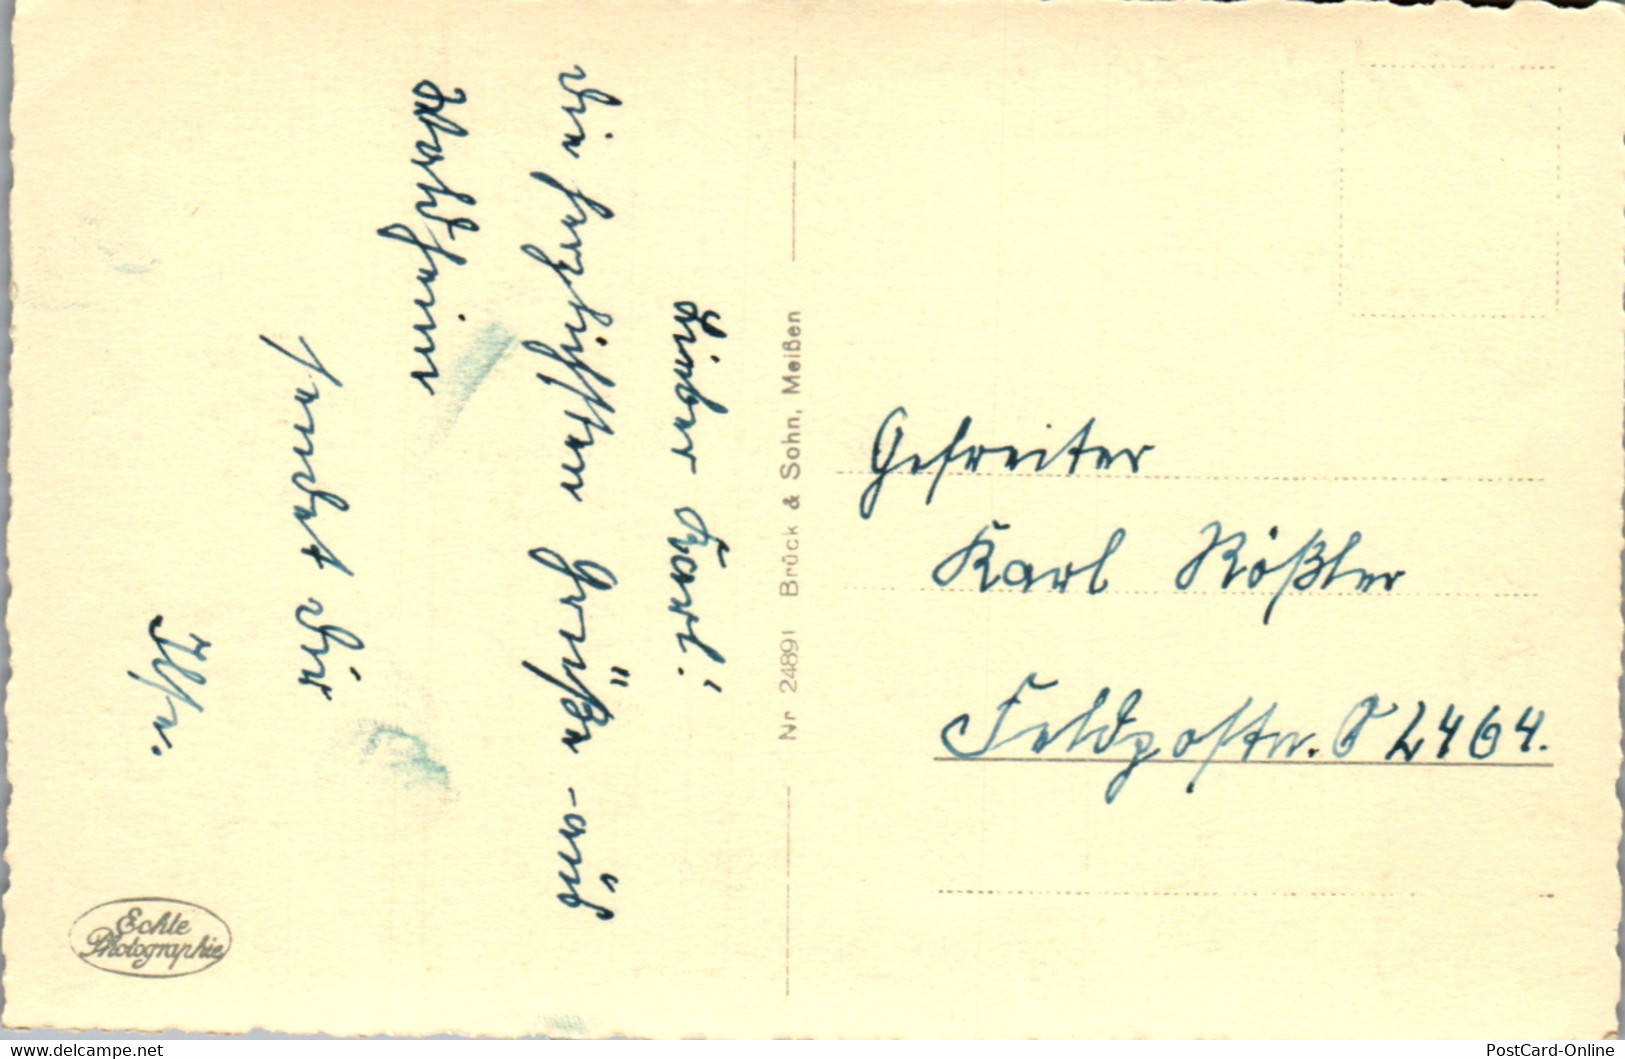 Lieber Karl!
Die herzlichsten Grüße aus
Waldheim
sendet Dir
Ilse.
Echte
Photographie
Nr 24891 Brück & Sohn, Meißen
Gefreiter
Karl Rößler
Feldpostnr. S 2464.
www.delcampe.net
PostCard-Online